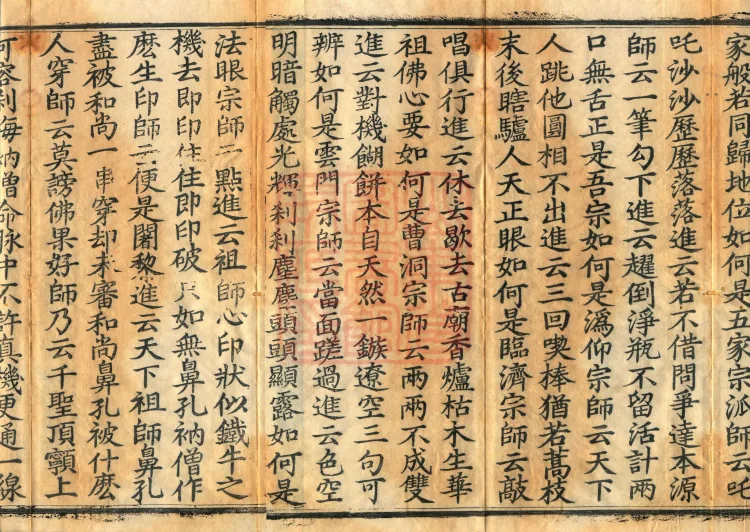 家般若同歸地位如何是五家宗派師云吒
吒沙沙歷歷落落進云若不借問爭達本源
師云一筆勾下進云趯倒淨瓶不留活計兩
口無舌正是吾宗如何是潙仰宗師云天下
人跳他圓相不出進云三回喫棒猶若蒿枝
末後瞎驢人天正眼如何是臨濟宗師云敲
唱俱行進云休去歇去古廟香爐枯木生華
祖佛心要如何是曹洞宗師云兩兩不成雙
進云對機餬餅本自天然一鏃遼空三句可
辨如何是雲門宗師云當面蹉過進云色空
明暗觸處光輝剎剎塵塵頭頭顯露如何是
法眼宗師云點進云祖師心印狀似鐵牛之
機去即印住住即印破只如無鼻孔衲僧作
麽生印師云便是闍黎進云天下祖師鼻孔
盡被和尚一串穿却未審和尚鼻孔被什麽
人穿師云莫謗佛果好師乃云千聖頂𩕳上
可容剎海衲僧命脉中不許真機更通一線